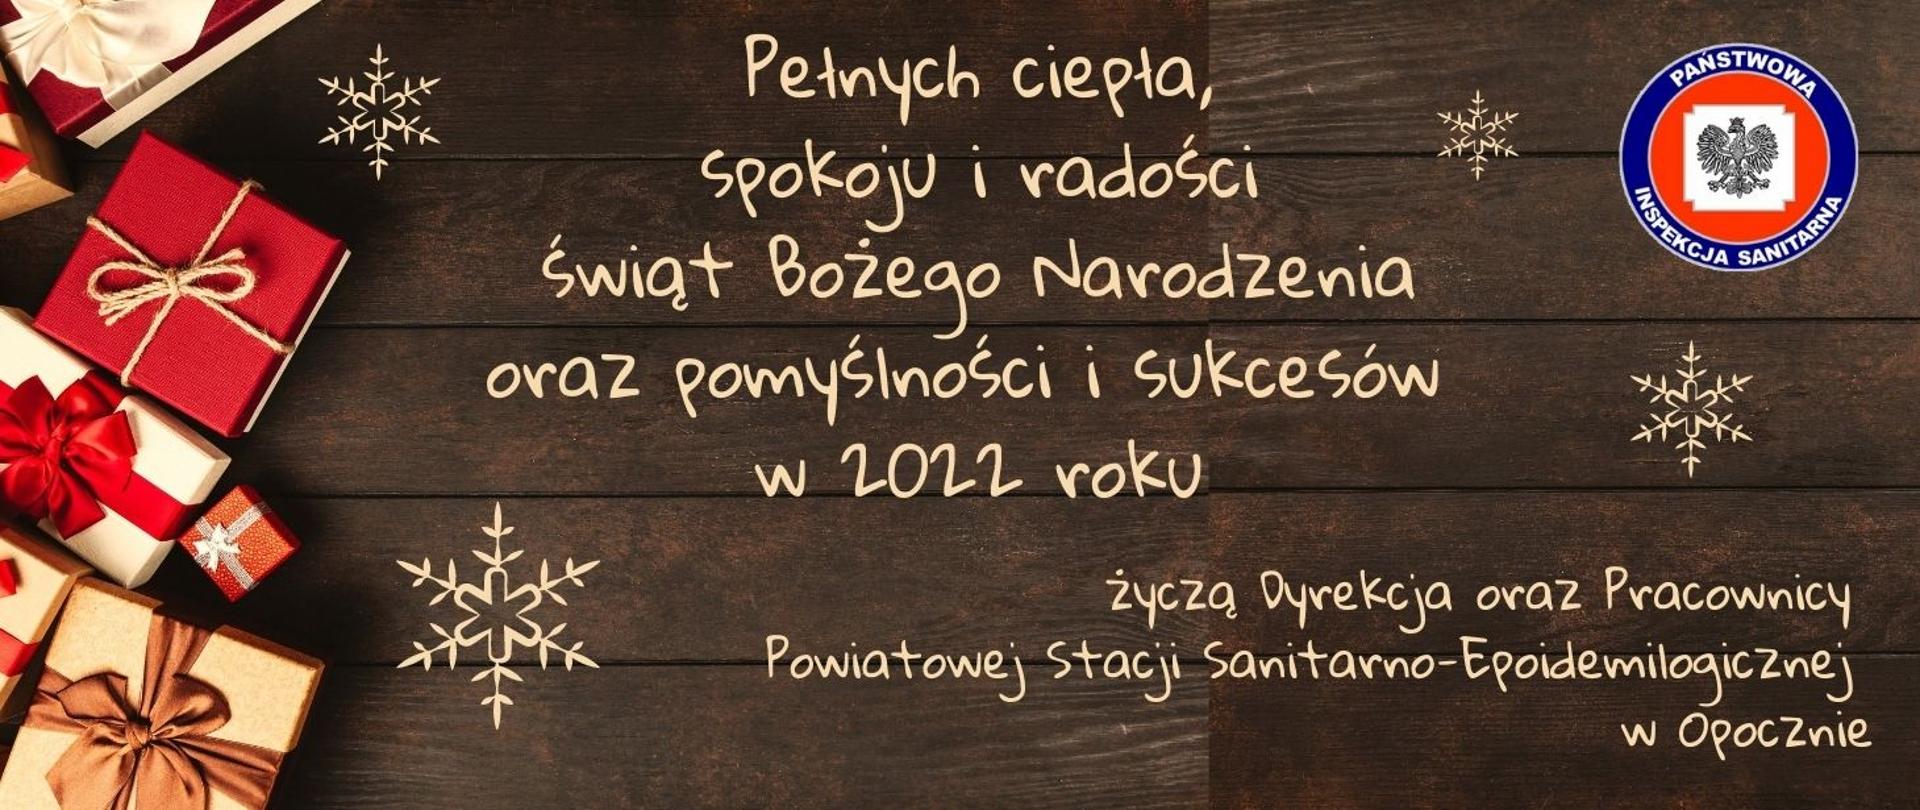 Pełnych ciepła,
spokoju i radości
świąt Bożego Narodzenia
oraz pomyślności i sukcesów
w 2022 roku
PAŃSTWOWA
INSPEKCJA SANITARNA
życzą Dyrekcja oraz Pracownicy
Powiatowej Stacji Sanitarno-Epoidemilogicznej
w Opocznie